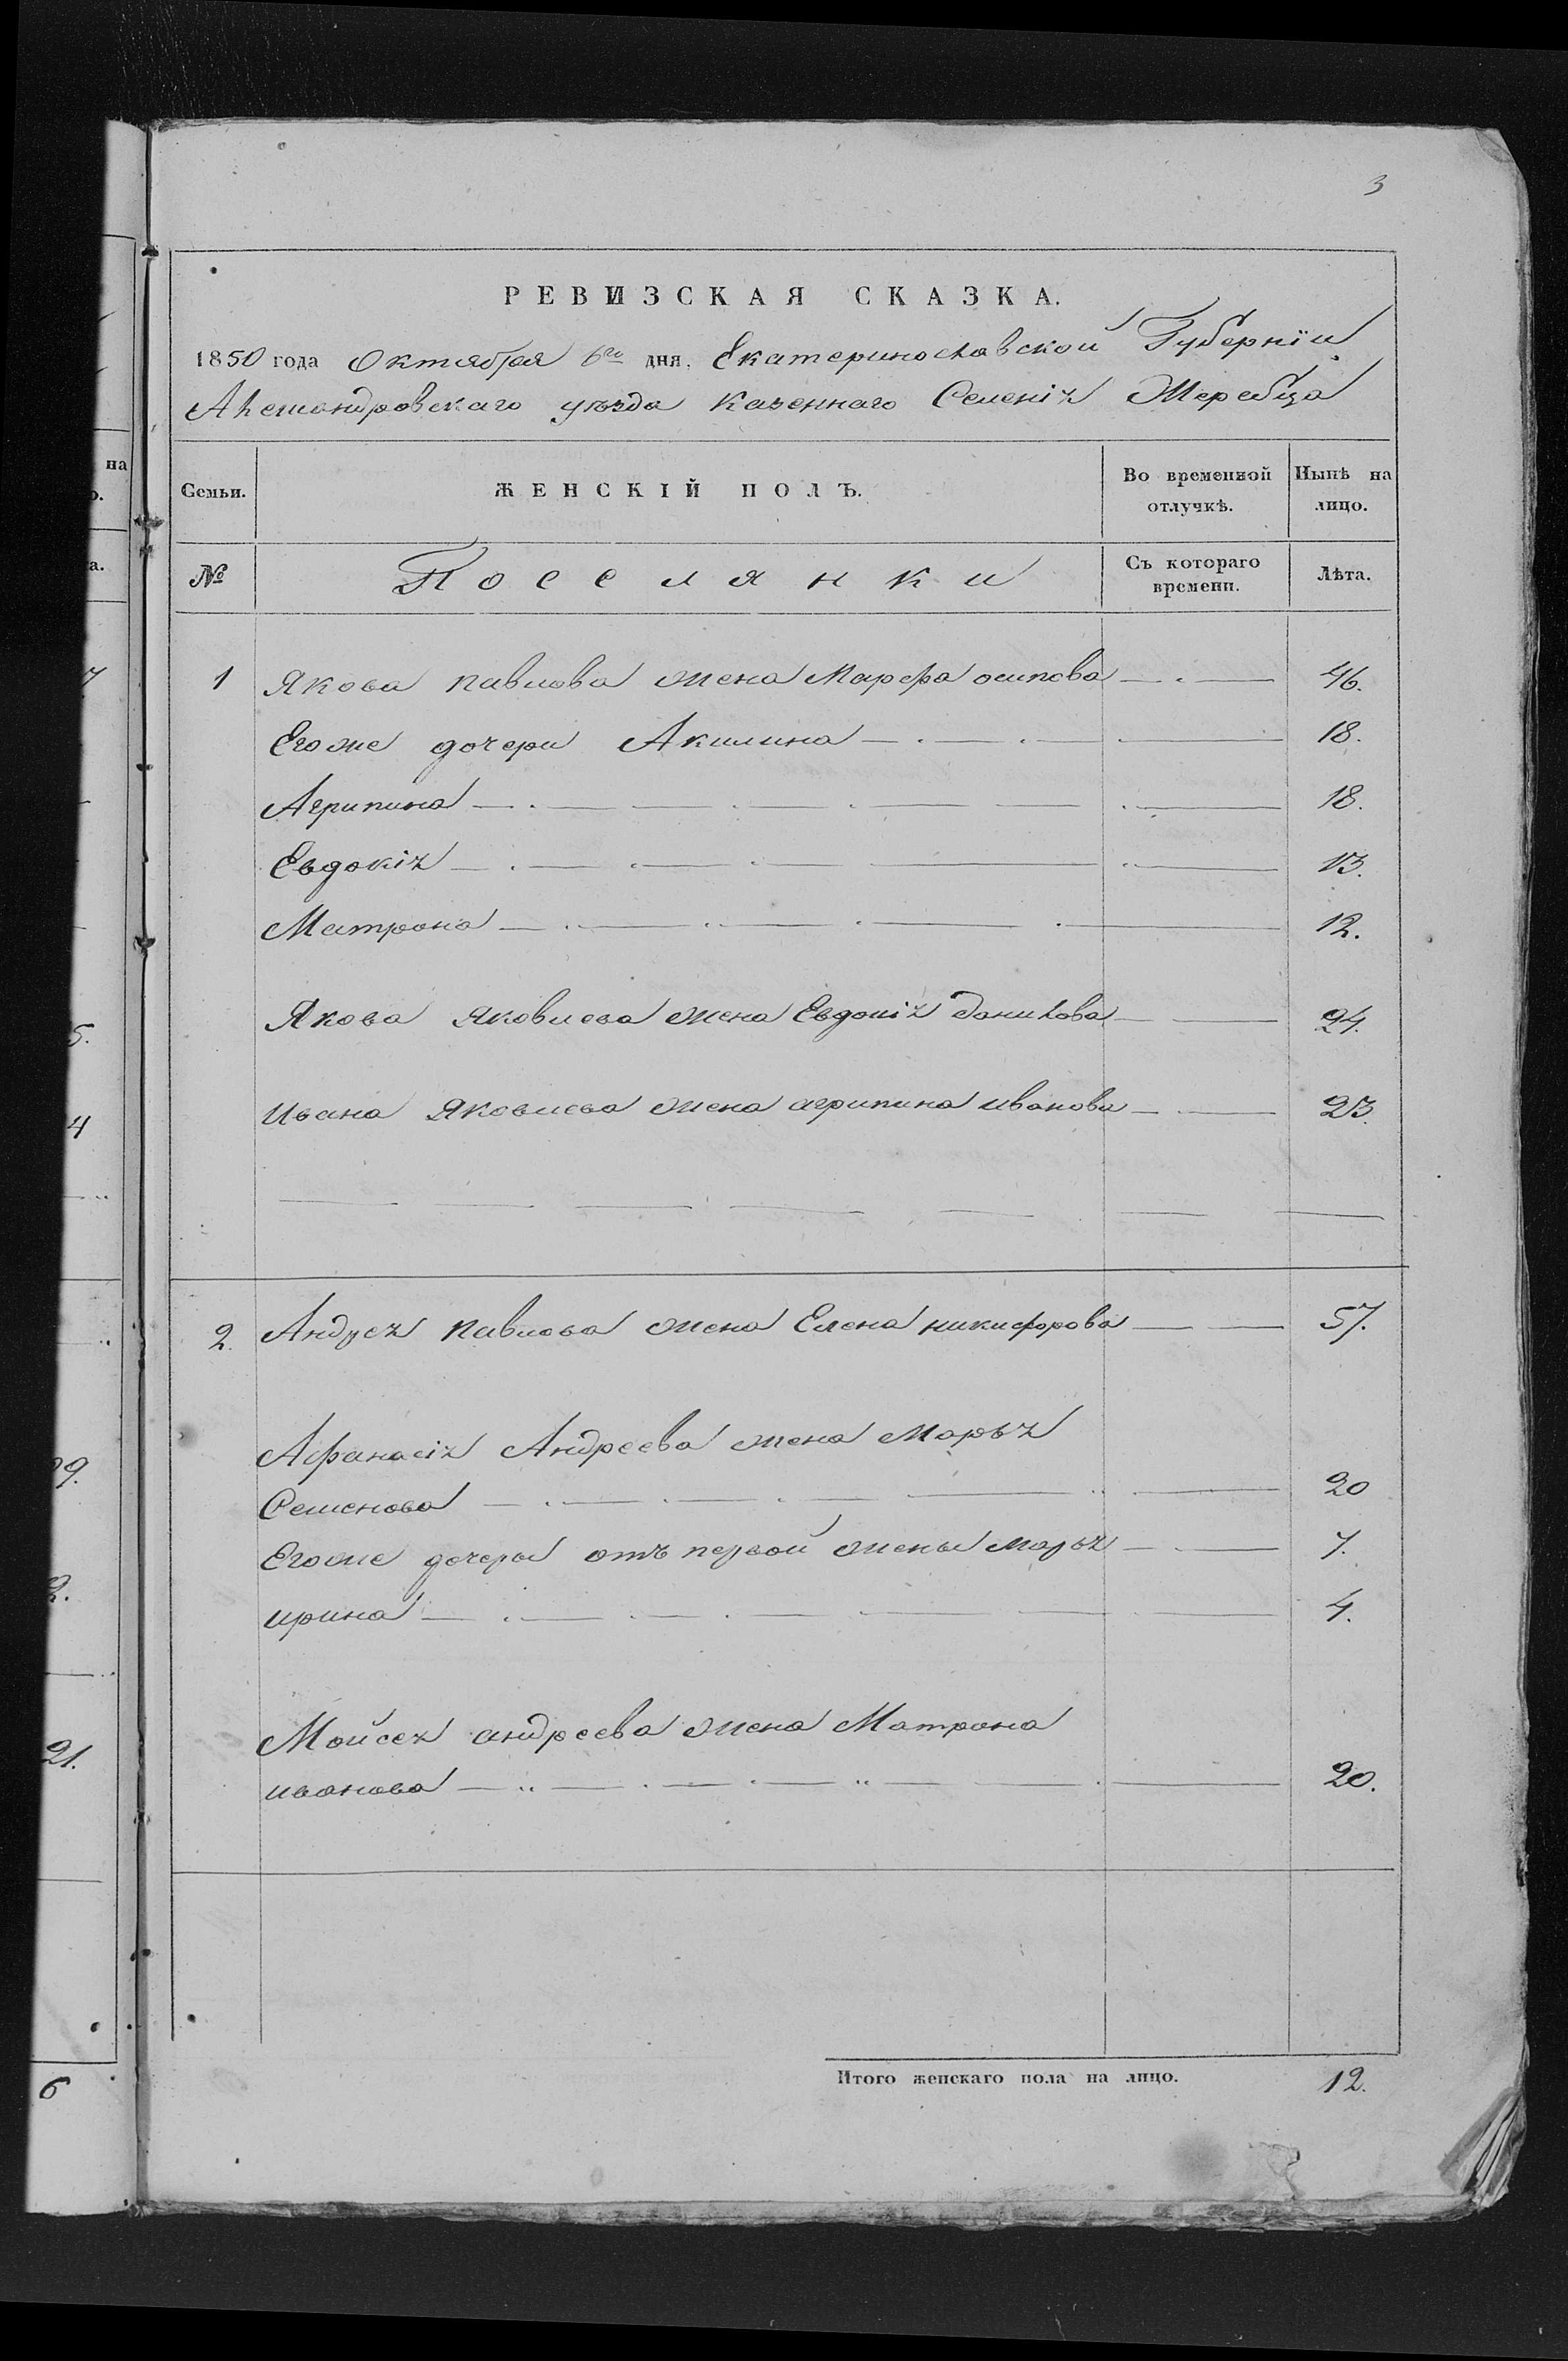 3
РЕВИЗСКАЯ СКАЗКА.
1850 года Октября 6го дня. Екатеринославской Губерніи
Александровскаго уѣзда казеннаго Селенія Жеребца
Семьи. ЖЕНСКІЙ ПОЛЪ. Во временной отлучкѣ. Нынѣ на лицо.
№ Поселянки Съ котораго времени. Лѣта.
1 Якова павлова жена Марфа осипова 46.
Егоже дочери Акилина 18.
Агрипина 18.
Евдокія 13.
Матрона 12.
Якова яковлева жена Евдокія данилова 24.
Ивана яковлева жена агрипина иванова 23.
2. Андрея павлова жена Елена никифорова 57.
Афанасія Андреева жена Марья
Семенова 20
Егоже дочеры отъ первой жены марья 7.
ирина 4.
Мойсея андреева жена Матрона
иванова 20.
Итого женскаго пола на лицо. 12.
на
о.
а.
5.
4
2.
21.
6